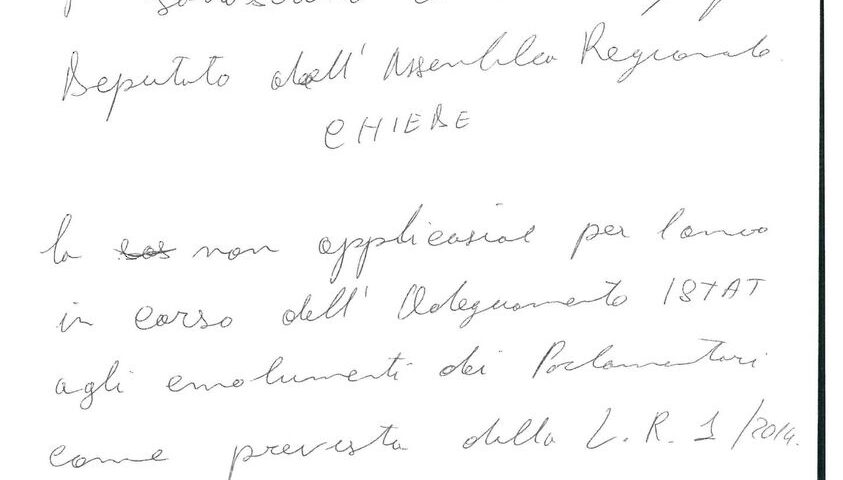 Deputato dell' Assemblea Regionale
CHIEDE
la non applicazione per l'anno
in corso dell' Adeguamento ISTAT
agli emolumenti dei Parlamentari
come prevista dalla L. R. 1/2014.